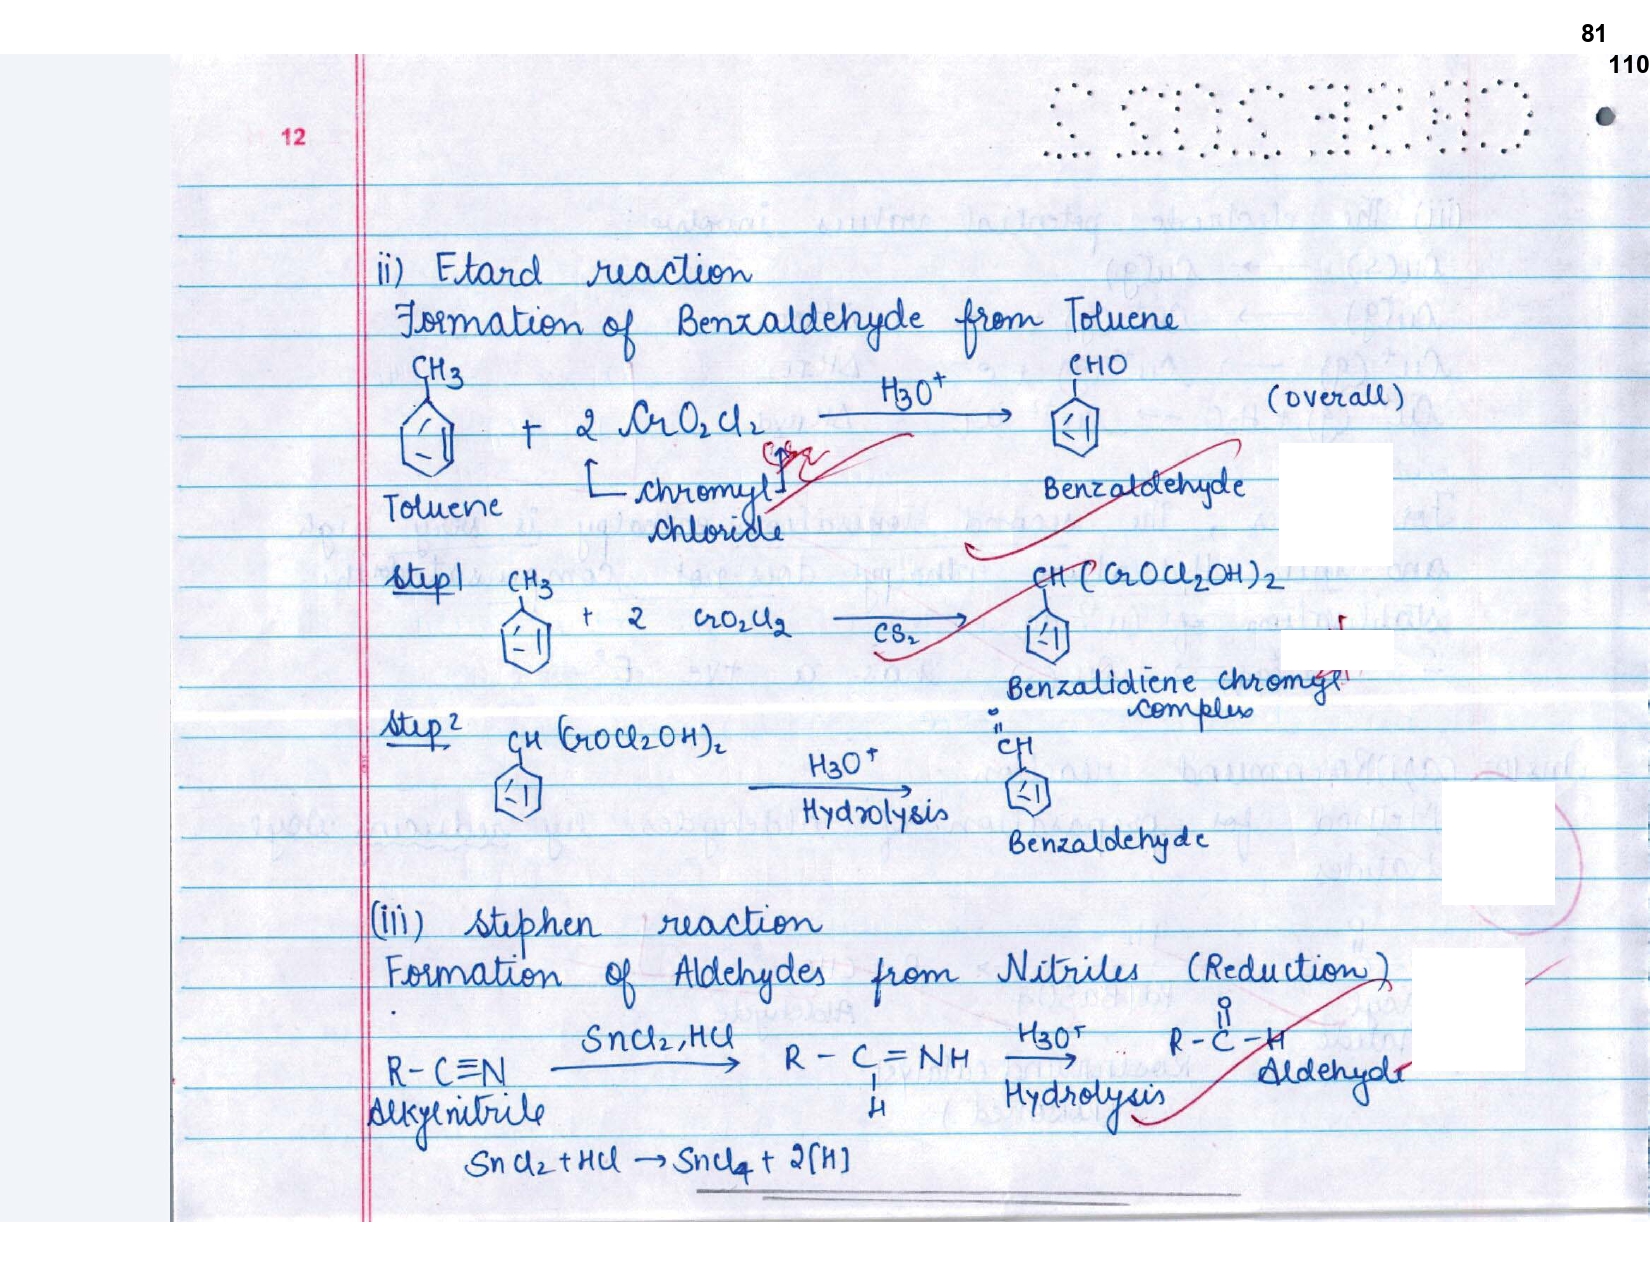 81
110
12
CBSE 2022
ii) Etard reaction
Formation of Benzaldehyde from Toluene
CH3 + 2 CrO2Cl2 H3O+ → CHO (overall)
Toluene chromyl chloride Benzaldehyde
Step 1 CH3 + 2 CrO2Cl2 → CS2 CH(CrOCl2OH)2
Benzalidiene chromyl
complex
Step 2 CH(CrOCl2OH)2 H3O+ → Hydrolysis O = CH
Benzaldehyde
(iii) Stephen reaction
Formation of Aldehydes from Nitriles (Reduction)
R-C≡N SnCl2, HCl → R - C = NH H3O+ → R-C-H
H Hydrolysis O Aldehyde
Alkylnitrile
SnCl2 + HCl → SnCl4 + 2[H]